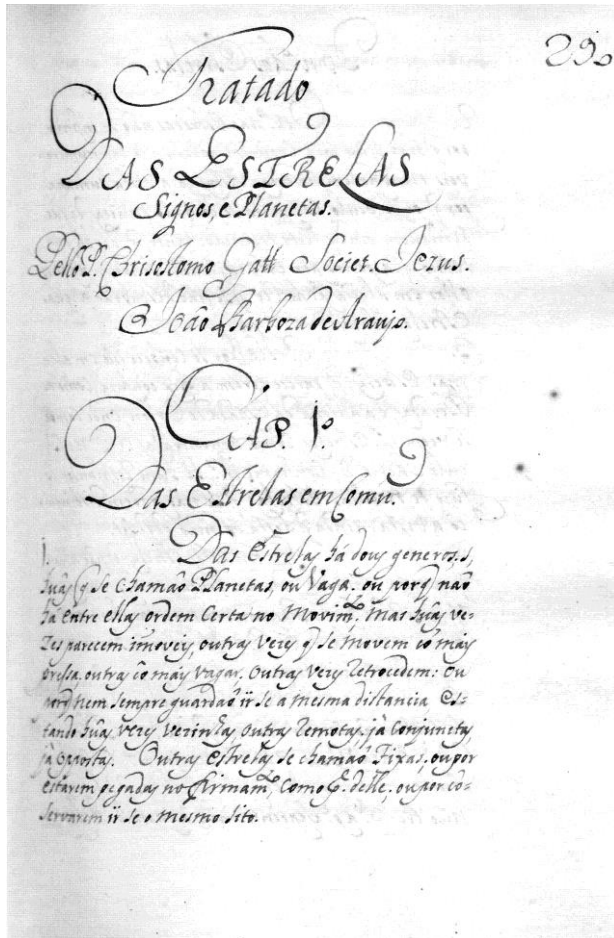 29.
Tratado
DAS ESTRELAS
Signos, e Planetas.
Pello P. Chrisostomo Gall Societ. Jezus.
João Barboza de Araujo.
CAP. 1º.
Das Estrelas em Comũ.
1. Das Estrelas há dous generos, s,
hũas q̃ se chamão Planetas, ou Vaga. ou porq̃ não
há entre ellas ordem Certa no Movimto, mas hũas ve-
zes parecem imoveis, outras vezes q̃ se movem cõ mais
pressa, outras cõ mais vagar. Outras vezes retrocedem: Ou
porq̃ nem sempre guardão ĩr se a mesma distancia, es-
tando hũas vezes vezinhas, outras remotas, já conjunctas,
já oppostas. Outras estrelas se chamão Fixas, ou por
estarem pegadas no firmamto, como delle, ou por cõ-
servarem ĩr se o mesmo sito.